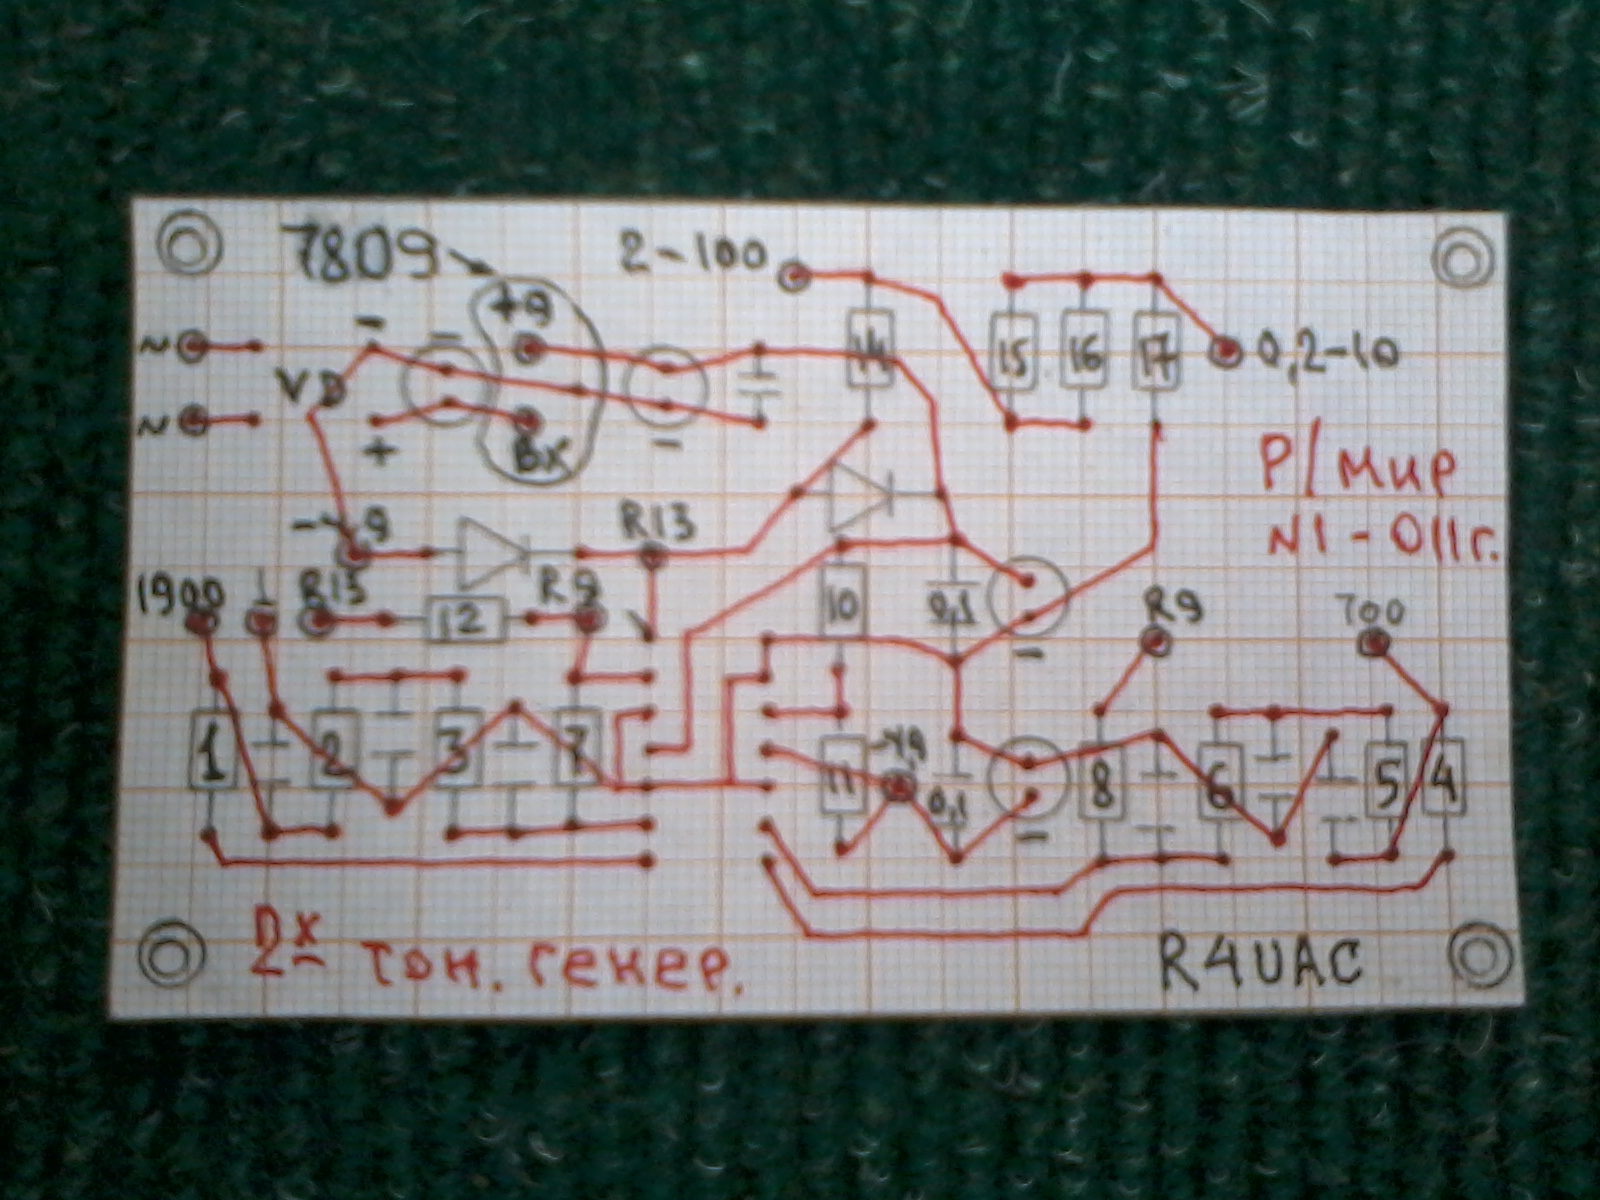 7809
2-100
+9
~
-
-
14
15
16
17
0,2-10
VD
~
+
Вх
-
Р/мир
N1-011г.
R13
1900
R15
R9
12
10
0,1
-
R9
700
1
2
3
7
11
0,1
-
8
6
5
4
2х тон. генер.
R4UAC